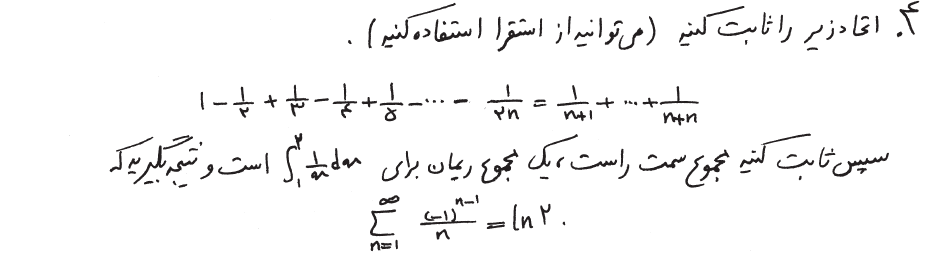 ۴. اتحاد زیر را ثابت کنید (می‌توانید از استقرا استفاده کنید).
۱ - ۱/۲ + ۱/۳ - ۱/۴ + ۱/۵ - ... - ۱/۲n = ۱/n+۱ + ... + ۱/n+n
سپس ثابت کنید مجموع سمت راست، یک مجموع ریمان برای ∫_۱^۲ ۱/x dx است و نتیجه بگیرید که
∑_{n=۱}^{∞} (-۱)^{n-۱}/n = ln ۲.